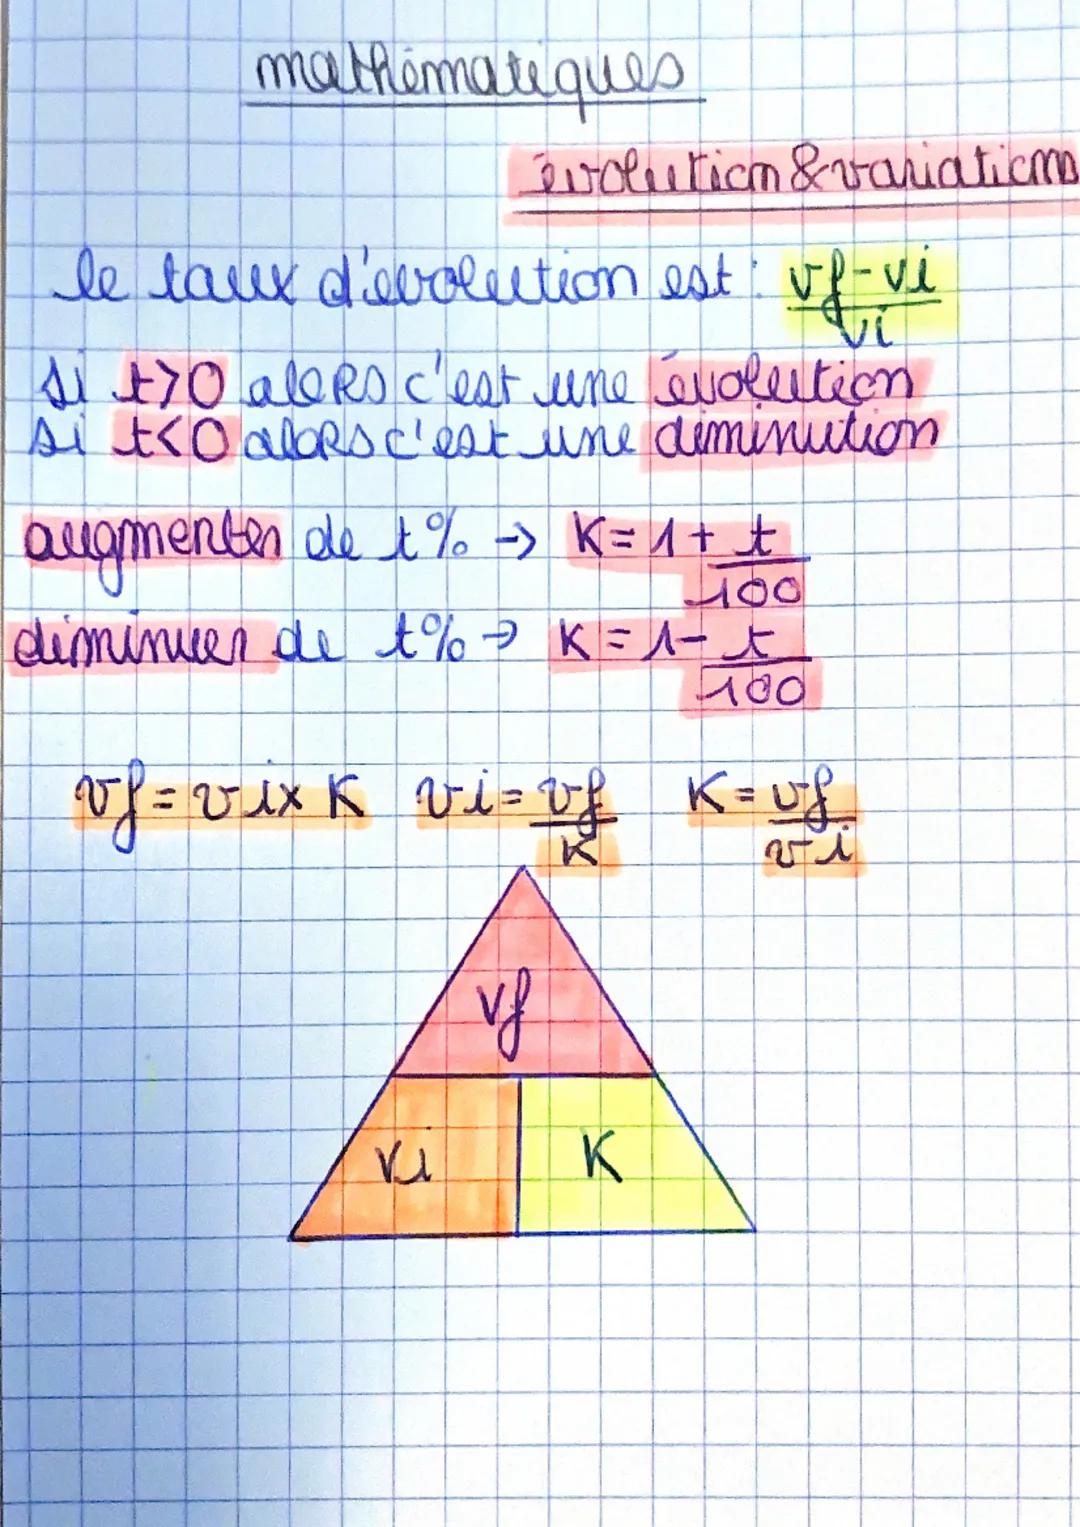 mathématiques
évolution & variations
le taux d'évolution est : vf-vi
vi
si t>0 alors c'est une évolution
si t<0 alors c'est une diminution
augmenter de t% → K = 1 + t
100
diminuer de t% → K = 1 - t
100
vf = vi x K vi = vf K = vf
K vi
vf
vi K